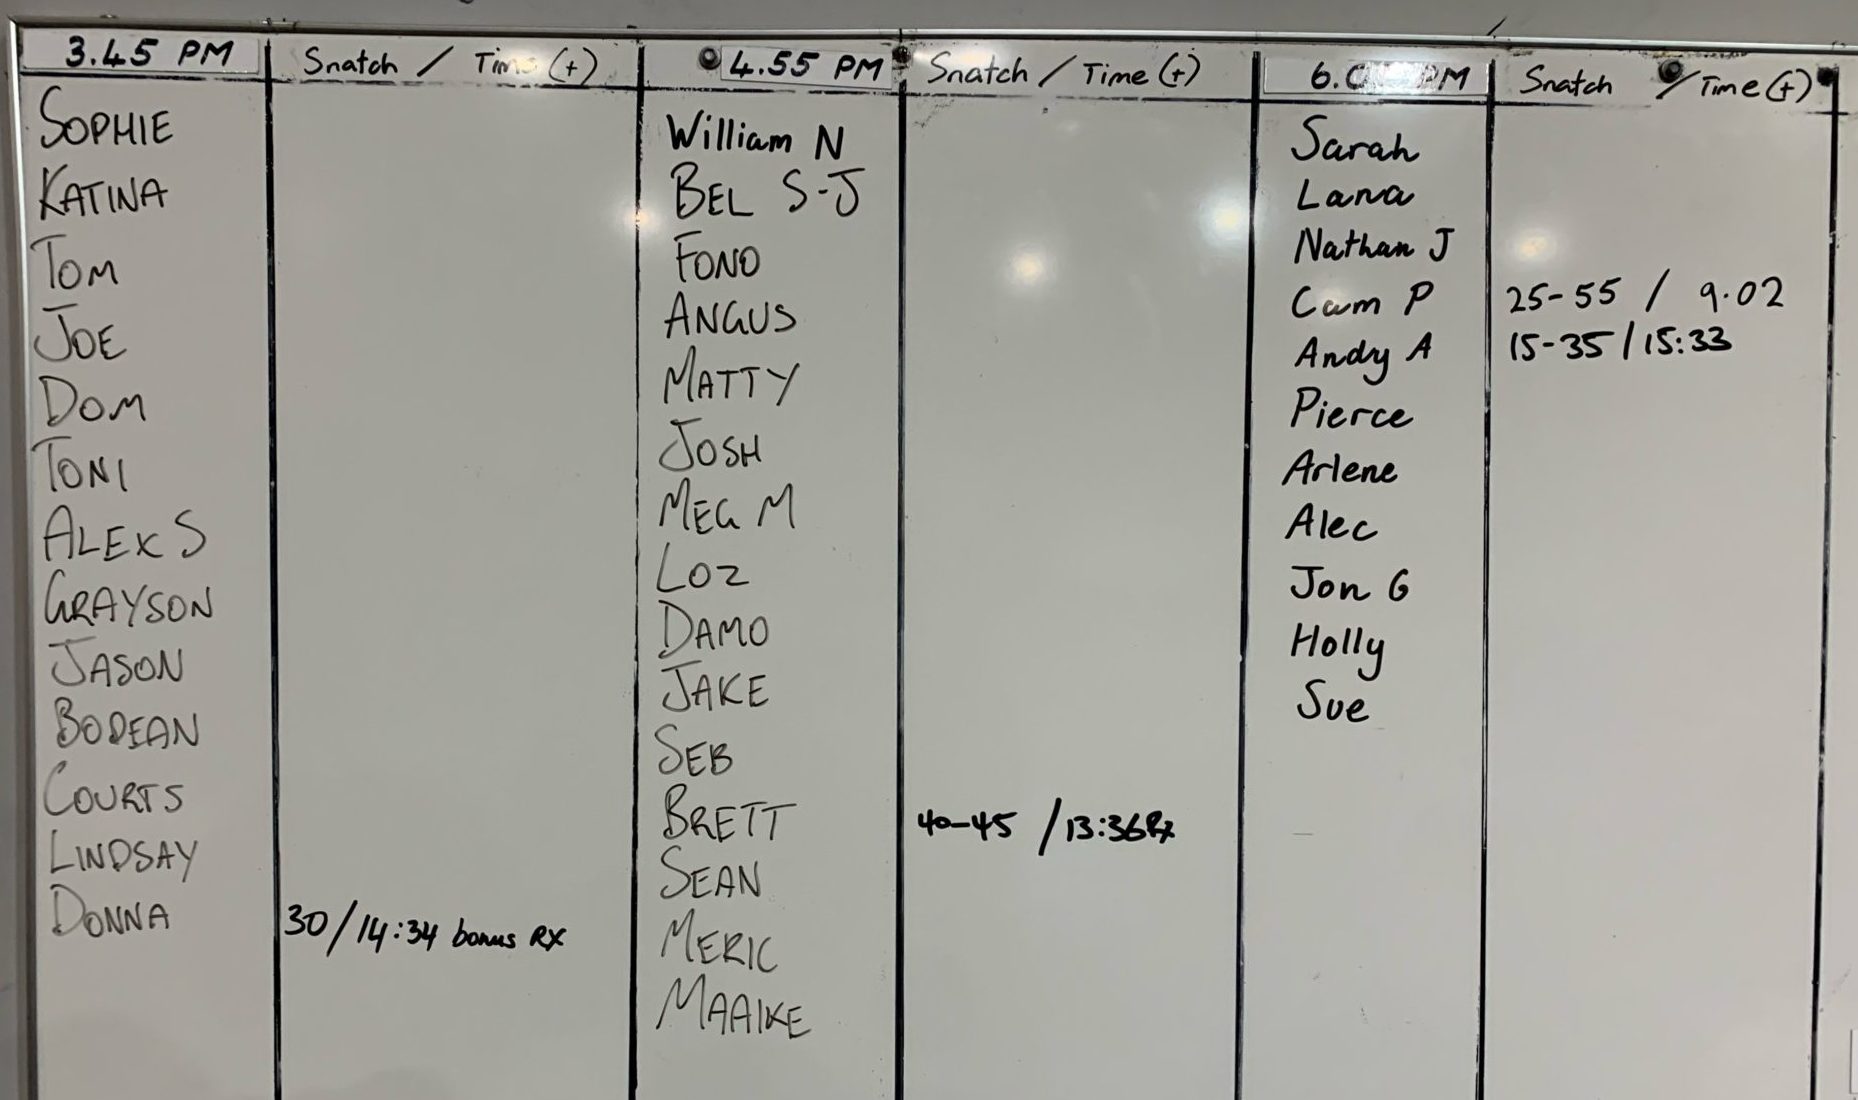 3.45 PM Snatch / Time (+) 4.55 PM Snatch / Time (+) PM Snatch / Time (+)
SOPHIE
KATINA
TOM
JOE
DOM
TONI
ALEX S
GRAYSON
JASON
BODEAN
COURTS
LINDSAY
DONNA 30/14:34 bonus RX
William N
BEL S-J
FONO
ANGUS
MATTY
JOSH
MEG M
LOZ
DAMO
JAKE
SEB
BRETT 40-45 / 13:36 Rx
SEAN
MERIC
MAAIKE
Sarah
Lana
Nathan J
Cam P 25-55 / 9.02
Andy A 15-35 / 15:33
Pierce
Arlene
Alec
Jon G
Holly
Sue